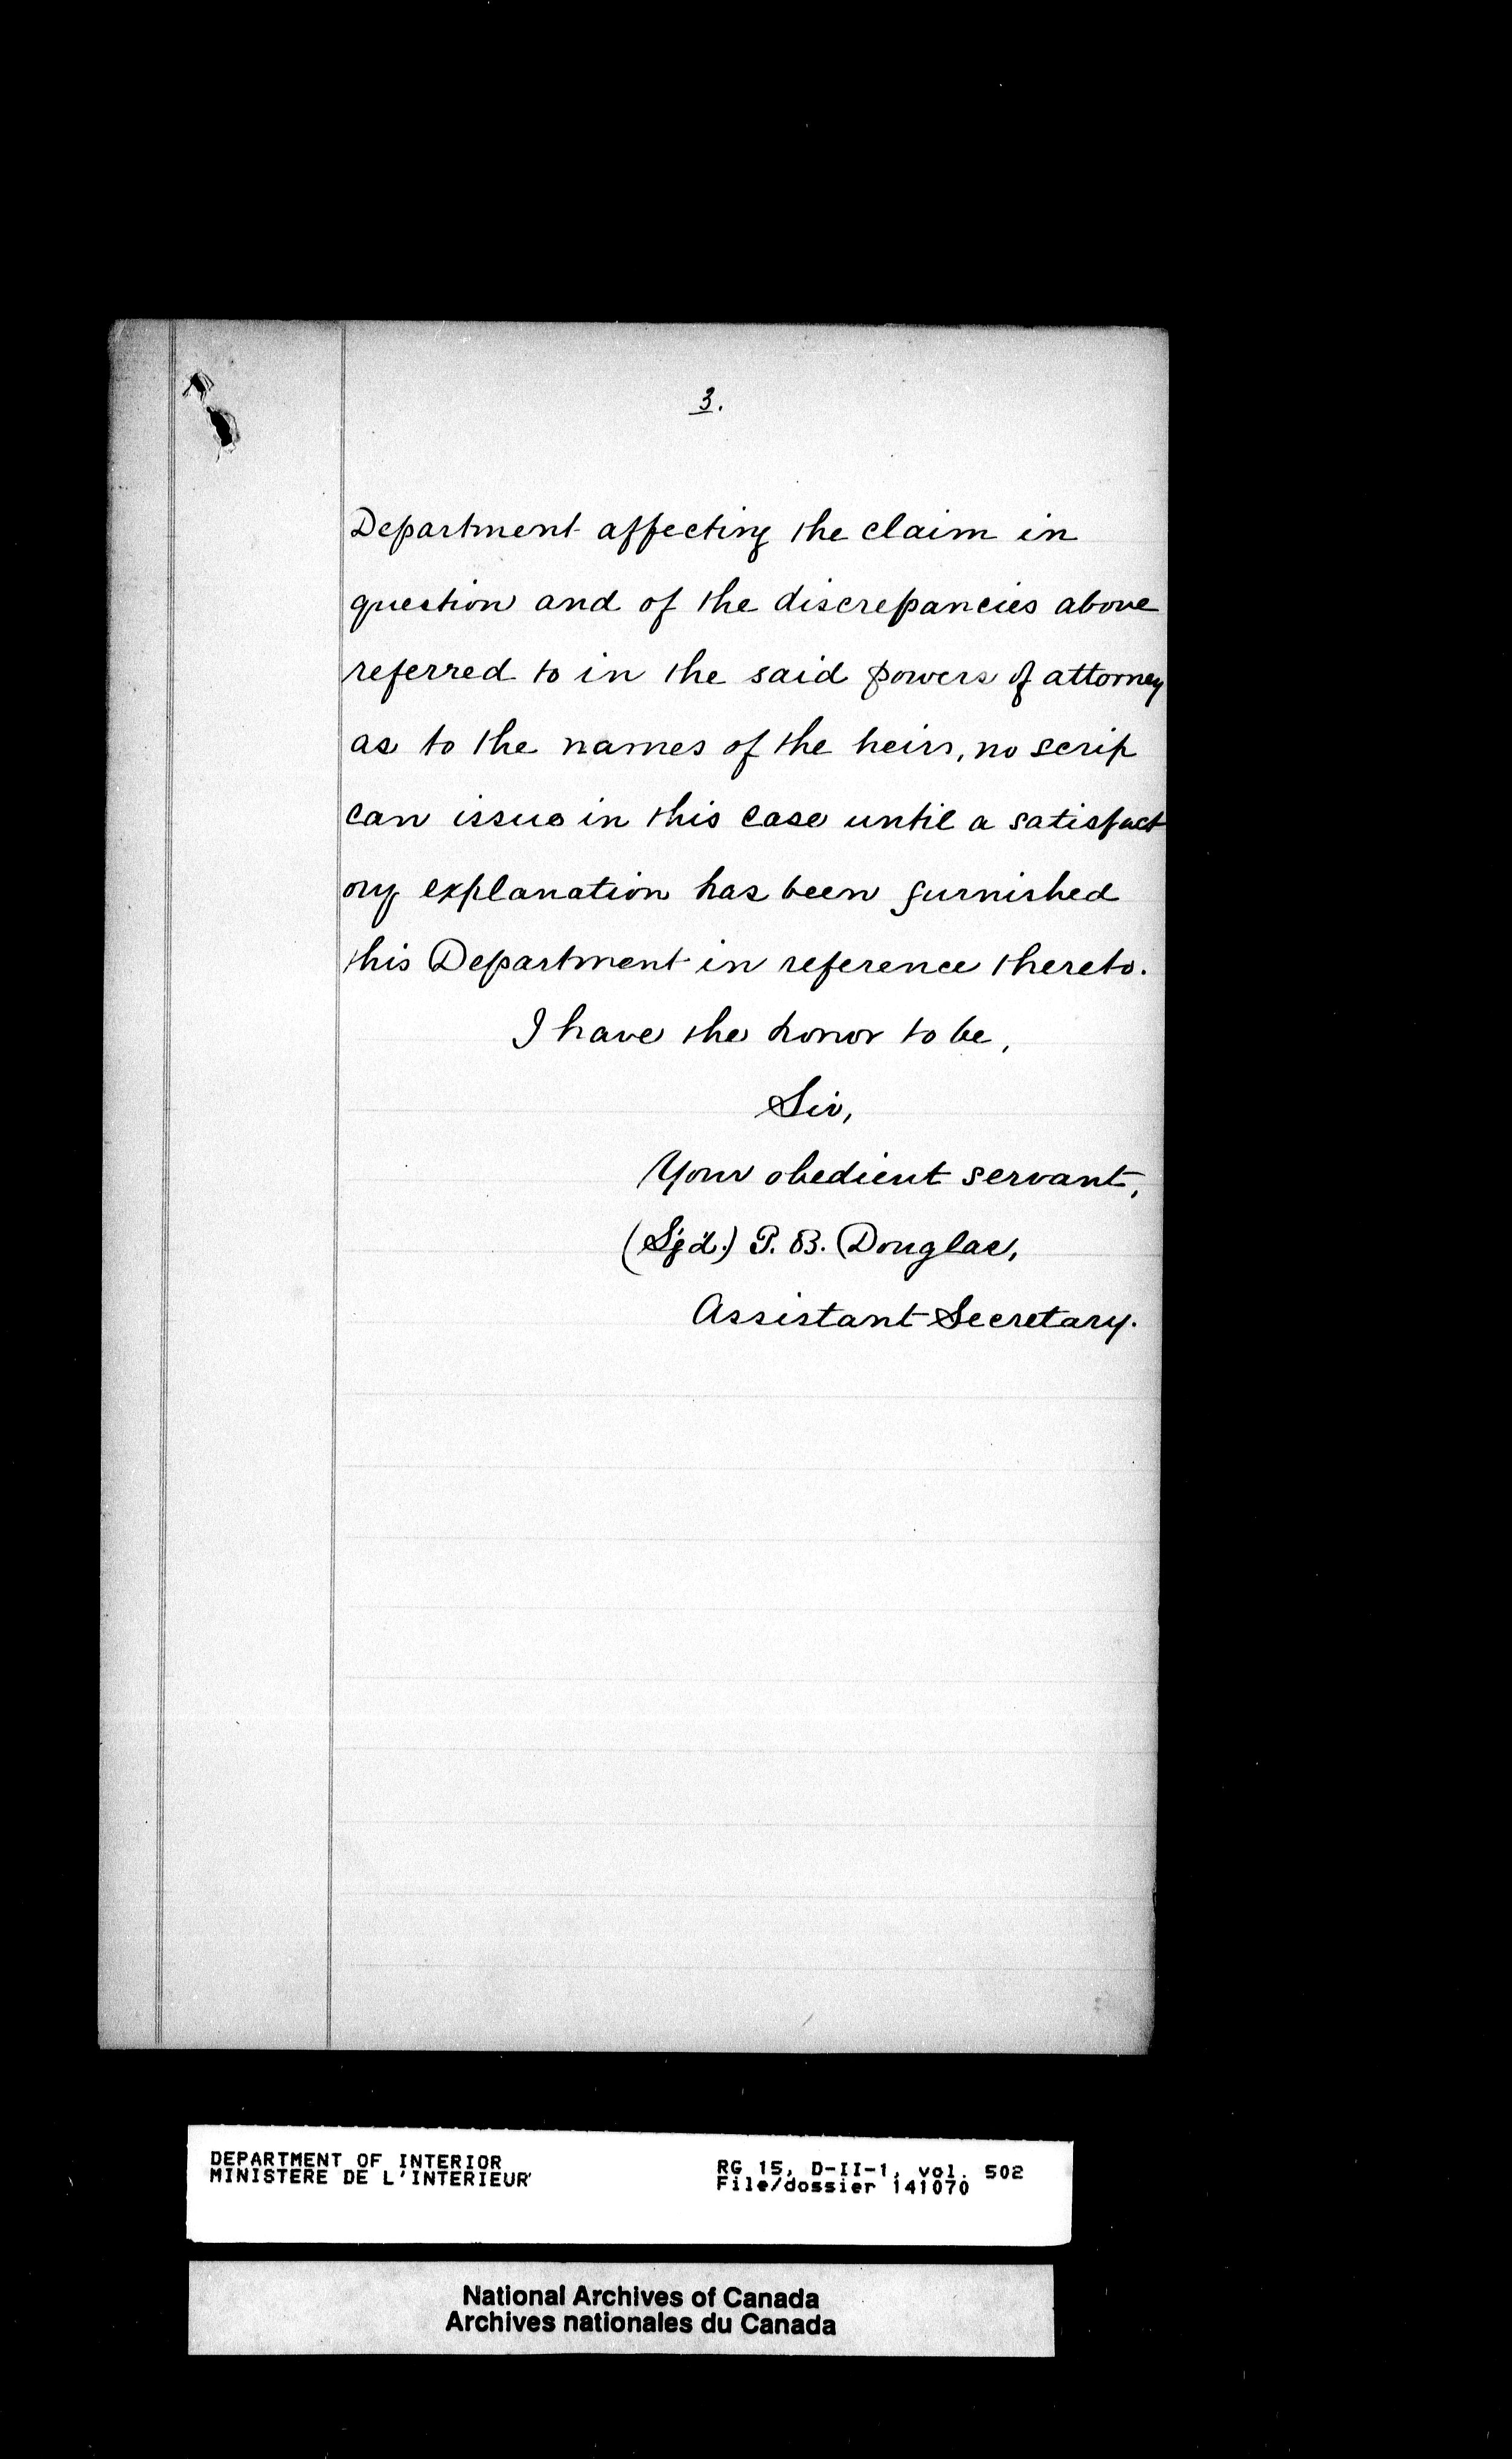 3.
Department affecting the claim in
question and of the discrepancies above
referred to in the said powers of attorney
as to the names of the heirs, no scrip
can issue in this case until a satisfact
ory explanation has been furnished
this Department in reference thereto.
I have the honor to be,
Sir,
Your obedient servant,
(Sg'd.) P. B. Douglas,
Assistant Secretary.
DEPARTMENT OF INTERIOR
MINISTERE DE L'INTERIEUR
RG 15, D-II-1, vol. 502
File/dossier 141070
National Archives of Canada
Archives nationales du Canada